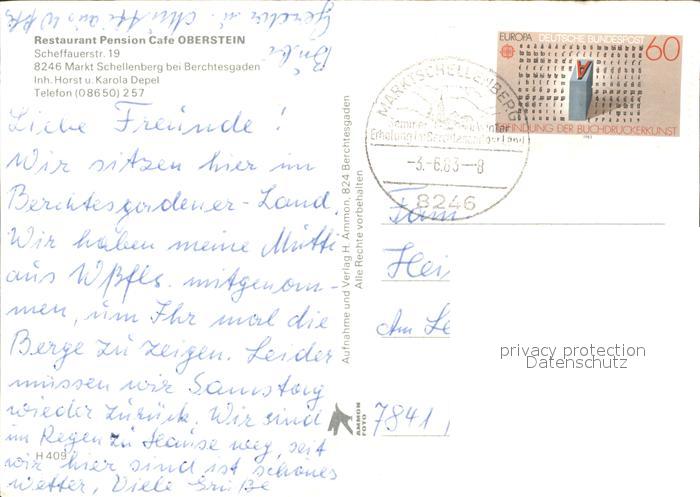 Restaurant Pension Cafe OBERSTEIN
Scheffauerstr. 19
8246 Markt Schellenberg bei Berchtesgaden
Inh. Horst u. Karola Depel
Telefon (08650) 257
Liebe Freunde!
Wir sitzen hier im
Berchtesgadener-Land.
Wir haben meine Mutti
aus Wßfls. mitgenom-
men, um Ihr mal die
Berge zu zeigen. Leider
müssen wir Samstag
wieder zurück. Wir sind
im Regen zu Hause weg, seit
wir hier sind ist schönes
Wetter, Viele Grüße
H 409
Aufnahme und Verlag H. Ammon, 824 Berchtesgaden
Alle Rechte vorbehalten
AMMON
FOTO
EUROPA DEUTSCHE BUNDESPOST 60
ERFINDUNG DER BUCHDRUCKERKUNST
1983
MARKTSCHELLENBERG
Erholung im Berchtesgadener Land
-3.-6.83--8
8246
Fam.
Hei
Am Le
7841
privacy protection
Datenschutz